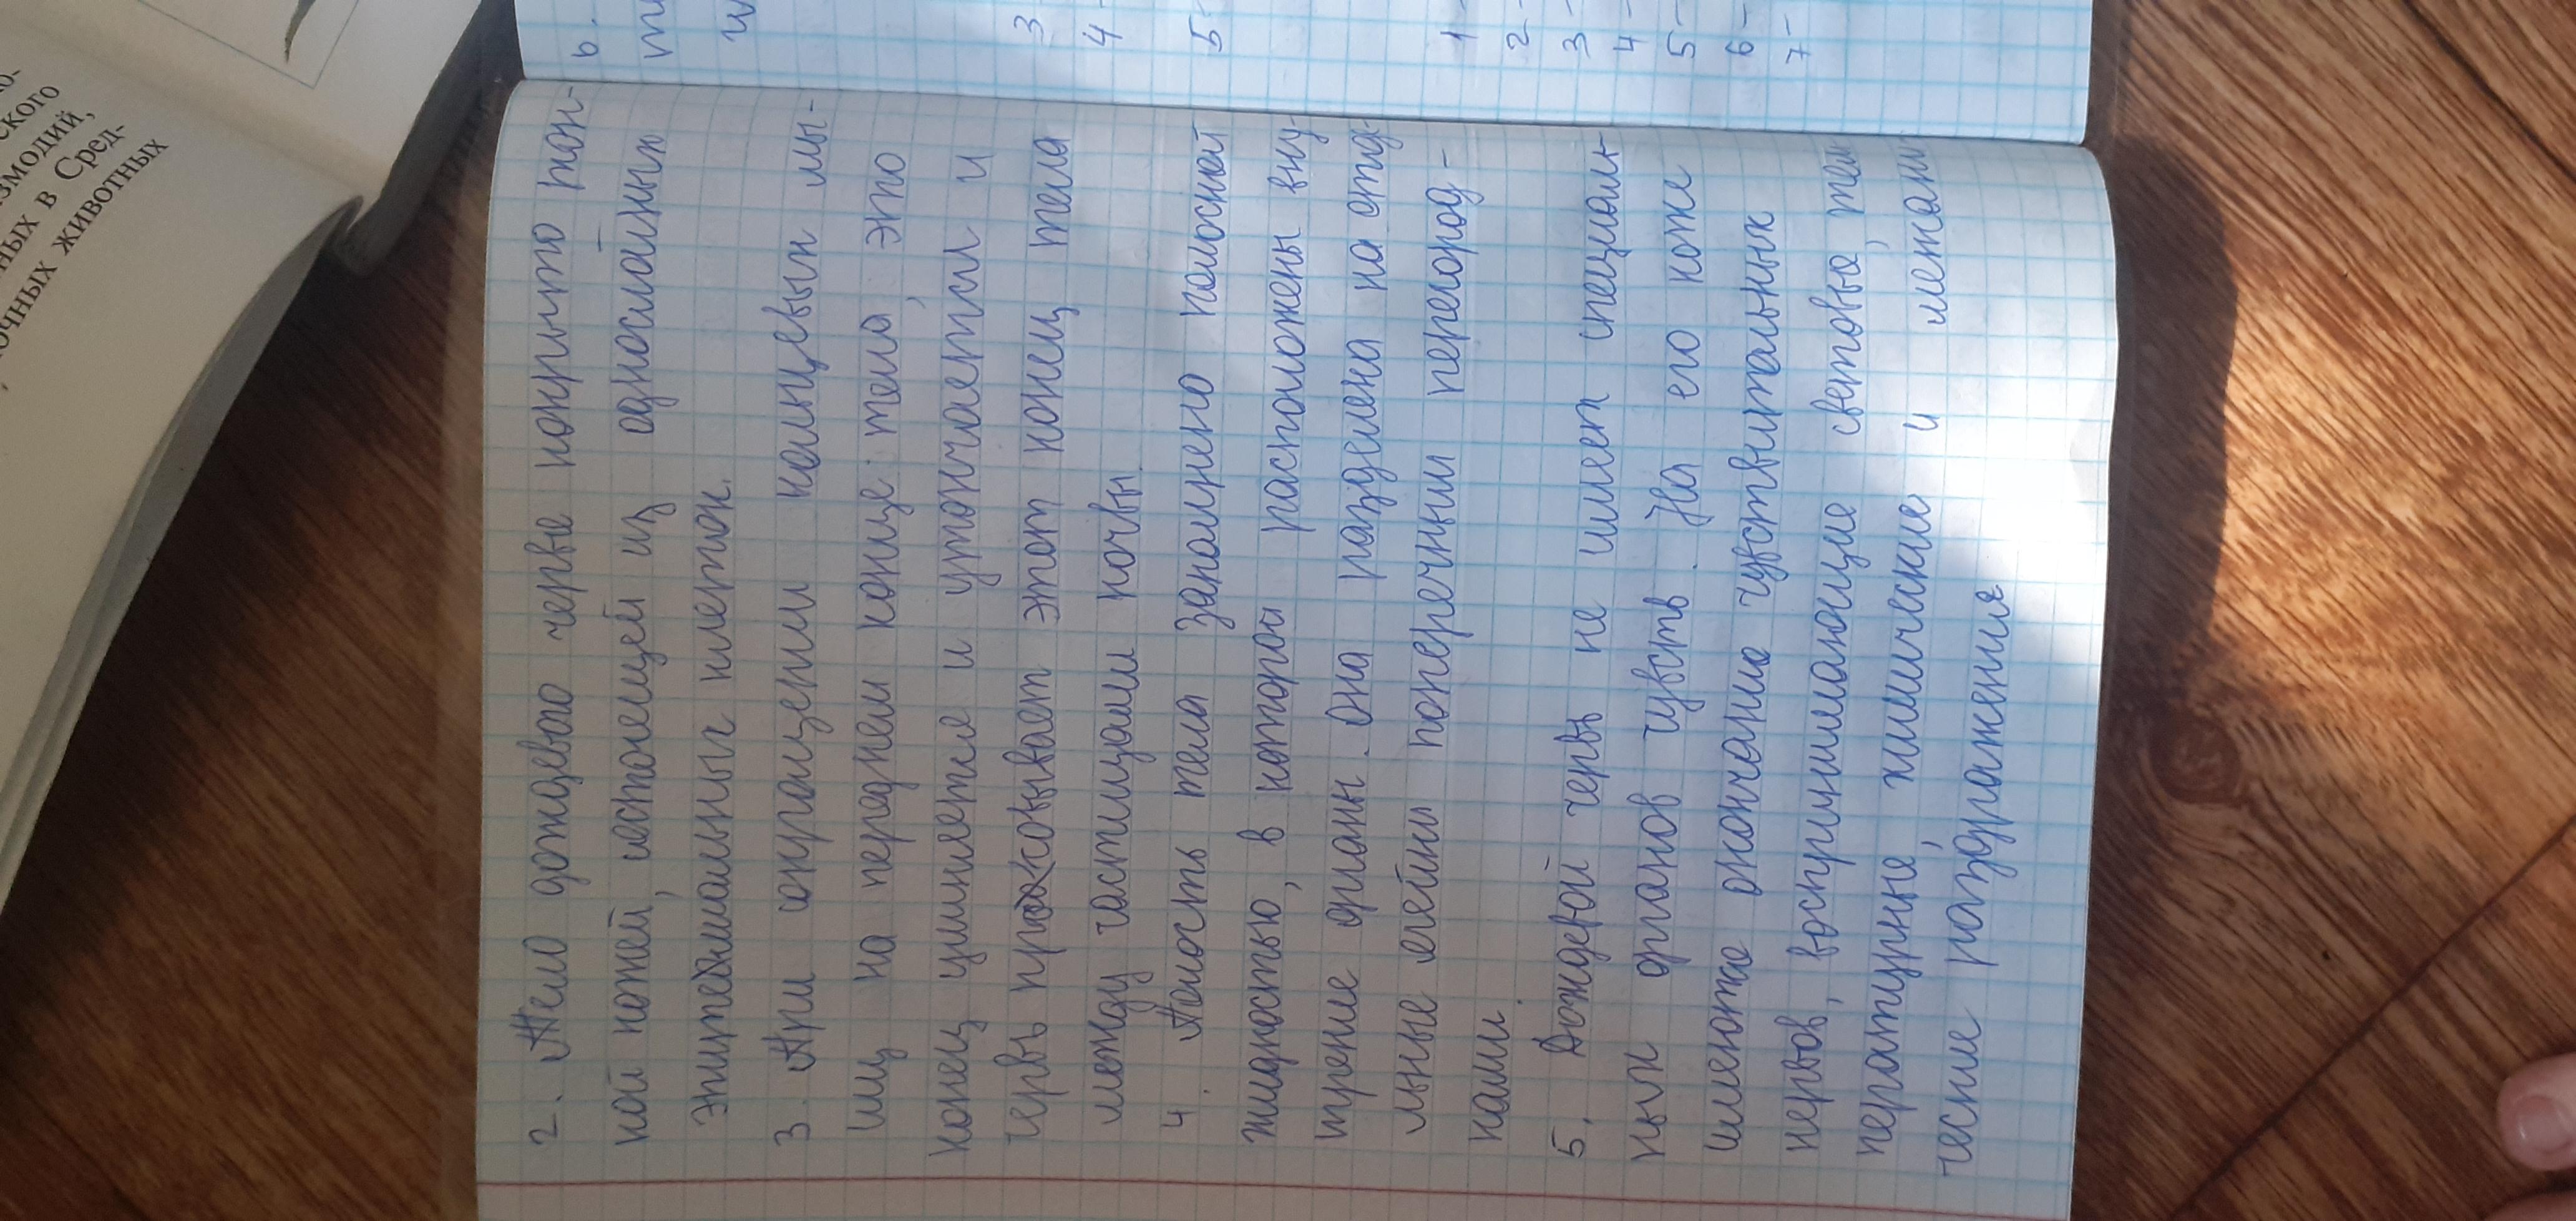 2. Тело дождевого черве покрыто тон-
кой кожей, истонещей из однослойных
эпитедмальных клеток.
3. При сокращении кольцевых мы-
шц на переднем конце тела, это
конец удлиняется и утончается и
червь просовывает этот конец тела
между частицами почвы.
4. Полость тела заполнено полосной
жидкостью, в которой расположены вну-
тренние органы. Она разделена на отд-
льные ячейки поперечными перегород-
ками.
5. Дождевой червь не имеет специаль-
ных органов чувств. На его коже
имеются окончание чувствительных
нервов, воспринимающие световые, тем-
пературные, химические и и механи-
ческие раздражения
3-
4-
5-
1-
2-
3-
4-
5-
6-
7-
ского
змодий,
ных в Сред-
очных животных